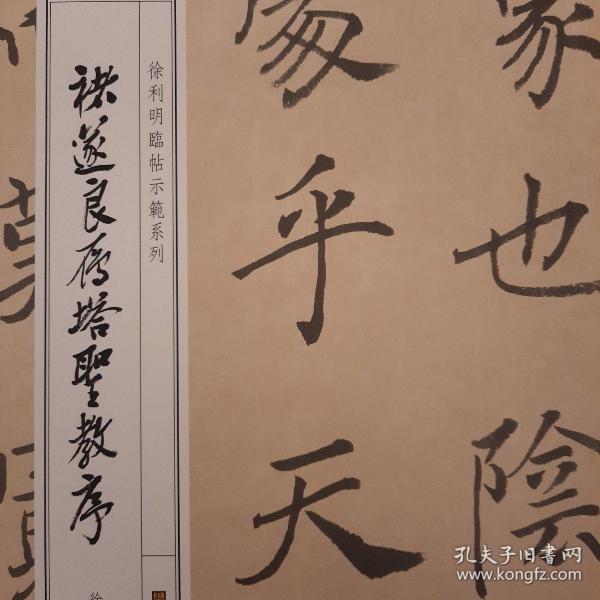 徐利明臨帖示範系列
褚遂良雁塔聖教序
徐
象也陰
乎天
孔夫子旧书网
www.kongfz.com